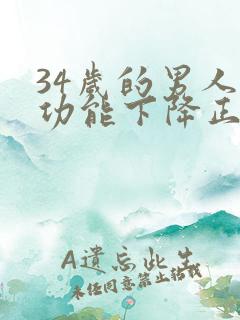 34岁的男人
功能下降正
A遗忘此生
未经同意禁止转载